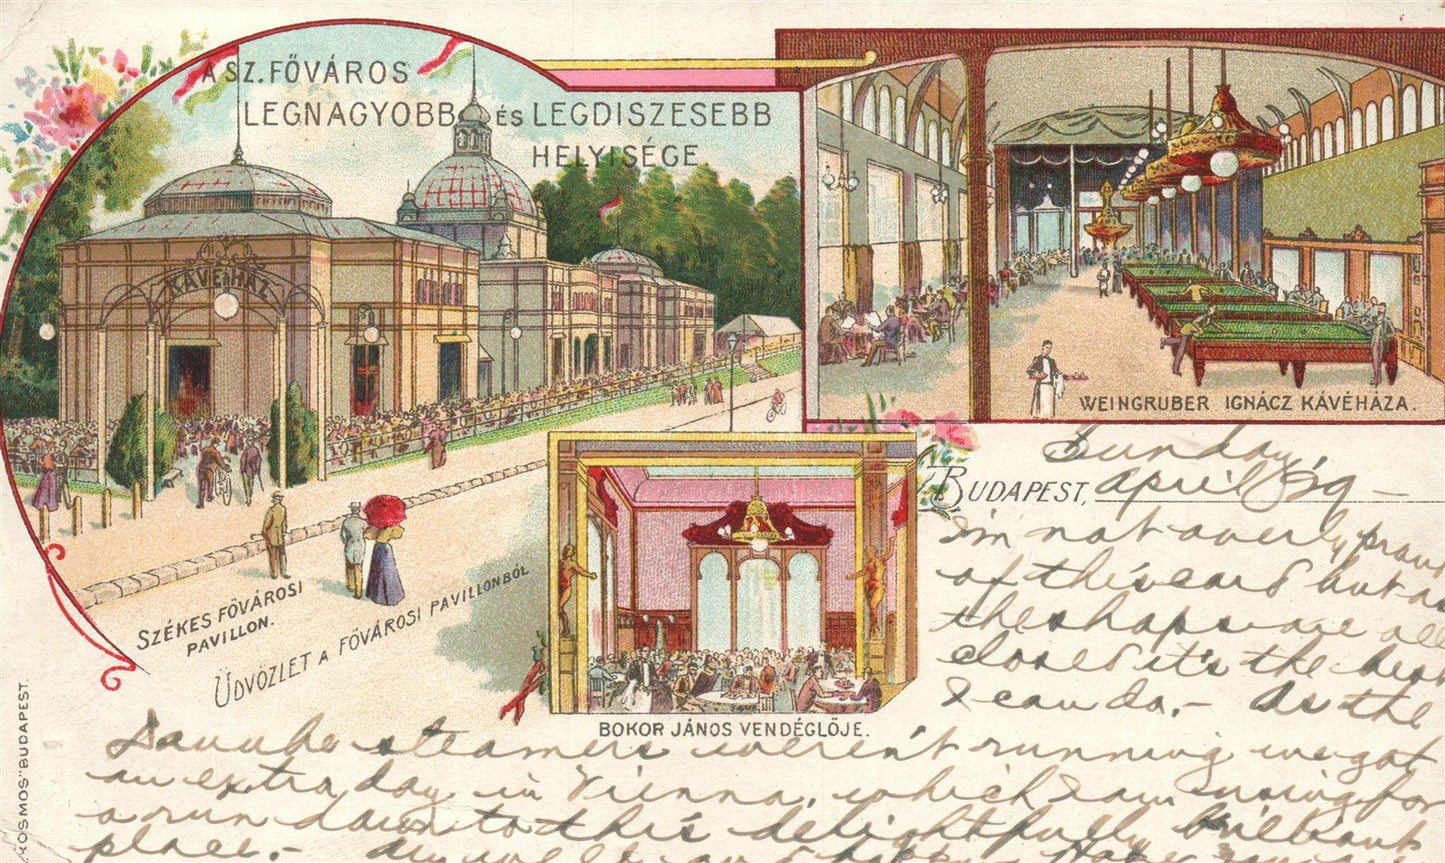 A SZ. FŐVÁROS
LEGNAGYOBB ÉS LEGDISZESEBB
HELYISÉGE.
KÁVEHÁZ
SZÉKES FŐVÁROSI
PAVILLON.
ÜDVÖZLET A FŐVÁROSI PAVILLONBÓL
WEINGRUBER IGNÁCZ KÁVÉHÁZA.
BOKOR JÁNOS VENDÉGLŐJE.
"KOSMOS" BUDAPEST.
BUDAPEST,
Sunday,
April 29 –
I'm not overly proud
of this card but as
the shops are all
closed it's the best
I can do. – As the
Danube steamers weren't running we got
an extra day in Vienna, which I am using for
a run down to this delightfully brilliant
place. – Am well and happy. Have